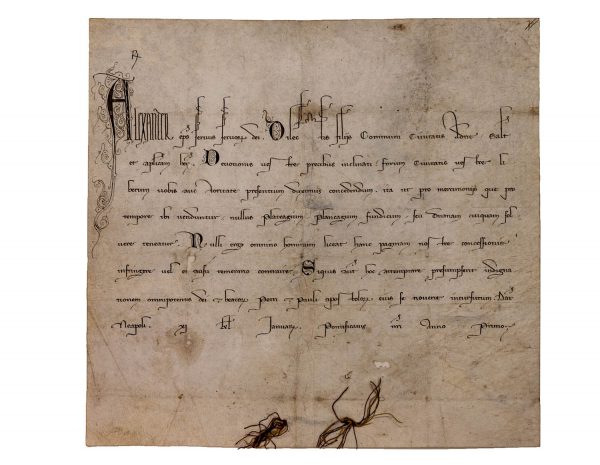 Alexander eps servus servor dei. Dilectis filiis Communi Civitatis Salt
et aplicam ben. Devotionis vestre precibus inclinati forum Civitatis vestre li
berum vobis auctoritate presentium duximus concedendum. ita ut pro mercimoniis que pro
tempore ibi venduntur nullus Plateagium Plancagium fundicum seu duanam cuiquam sol
vere teneatur. Nulli ergo omnino hominum liceat hanc paginam nostre concessionis
infringere vel ei ausu temerario contraire. Siquis aut hoc attemptare presumpserit indigna
tionem omnipotentis dei et beator Petri et Pauli apostolor eius se noverit incursurum. Dat
Neapoli. xj kl Januarii. Pontificatus nri Anno Primo.